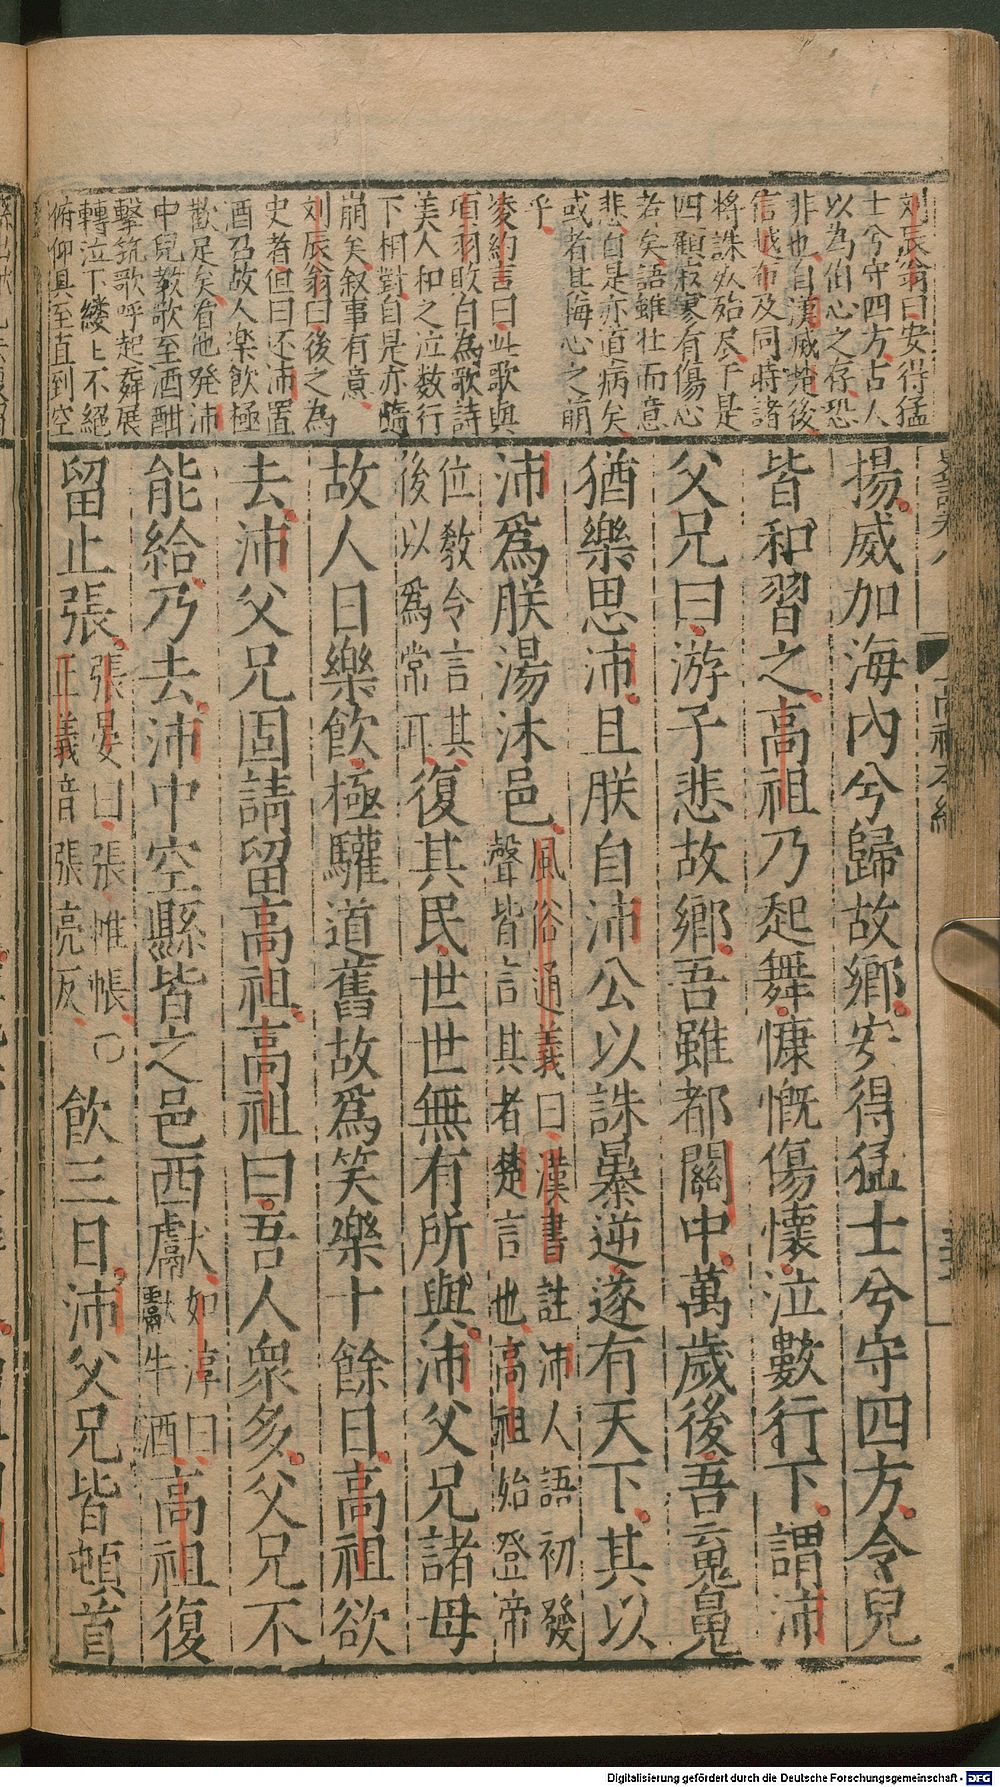 劉辰翁曰安得猛
士兮守四方古人
以為伯心之存恐
非也自漢滅楚後
信越布及同時諸
將誅死殆尽于是
四顧寂寞有傷心
者矣語雖壯而意
悲自是亦道病矣
或者其悔心之萌
乎
凌約言曰此歌與
項羽敗自為歌詩
美人和之泣数行
下相對自是亦
崩矣叙事有意
刘辰翁曰後之為
史者但曰还沛置
酒召故人楽飲極
歡足矣看他発沛
中兒教歌至酒酣
擊筑歌呼起舞展
轉泣下縷上不絕
俯仰具至直到空
揚威加海內兮歸故鄉安得猛士兮守四方令兒
皆和習之高祖乃起舞慷慨傷懷泣數行下謂沛
父兄曰游子悲故鄉吾雖都關中萬歲後吾䰟魄
猶樂思沛且朕自沛公以誅暴逆遂有天下其以
沛爲朕湯沐邑風俗通義曰漢書註沛人語初發
聲皆言其其者楚言也高祖始登帝
位教令言其
後以爲常耳復其民世世無有所與沛父兄諸母
故人日樂飲極驩道舊故爲笑樂十餘日高祖欲
去沛父兄固請留高祖高祖曰吾人衆多父兄不
能給乃去沛中空縣皆之邑西獻如淳曰
獻牛酒高祖復
留止張張晏曰張帷帳〇
正義音張亮反飲三日沛父兄皆頓首
Digitalisierung gefördert durch die Deutsche Forschungsgemeinschaft - DFG